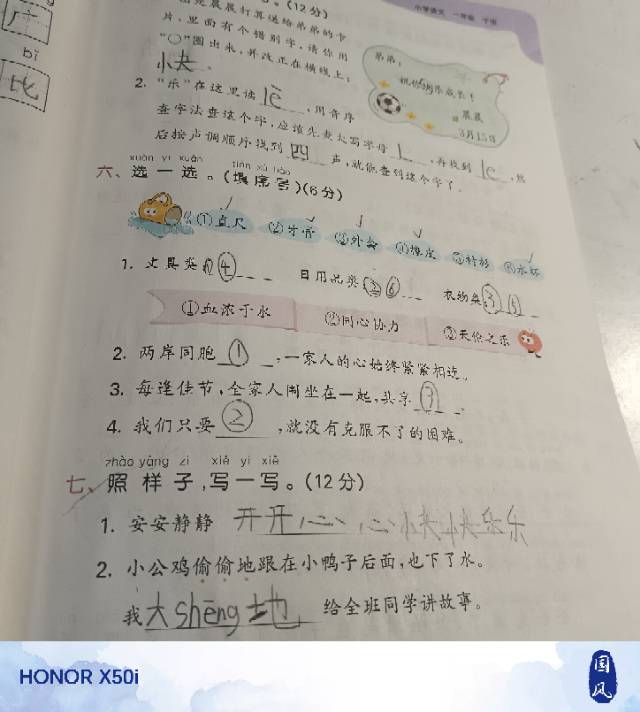 小学语文 一年级 下册
(12分)
晨晨打算送给弟弟的卡
片,里面有个错别字,请你用
“○”圈出来,并改正在横线上:
小夬。
弟弟:
祝你
成长!
晨晨
3月15日
bǐ
比
2. “乐”在这里读lè,用音序
查字法查这个字,应该先查大写字母L,再找到le,然
后按声调顺序找到四声,就能查到这个字了。
xuǎn yi xuǎn tián xù hào
六、选一选。(填序号)(6分)
①直尺 ②牙膏 ③外套 ④橡皮 ⑤衬衫 ⑥水杯
1. 文具类④ 日用品类②⑥ 衣物类③⑤
①血浓于水 ②同心协力 ③天伦之乐
2. 两岸同胞①,一家人的心始终紧紧相连。
3. 每逢佳节,全家人围坐在一起,共享③。
4. 我们只要②,就没有克服不了的困难。
zhào yàng zi xiě yi xiě
七、照样子,写一写。(12分)
1. 安安静静 开开心心 快快乐乐
2. 小公鸡偷偷地跟在小鸭子后面,也下了水。
我大shēng地给全班同学讲故事。
HONOR X50i
国风